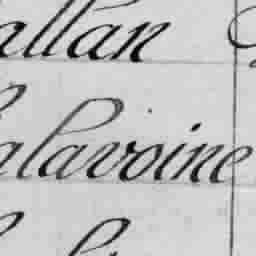 allan
alavoine